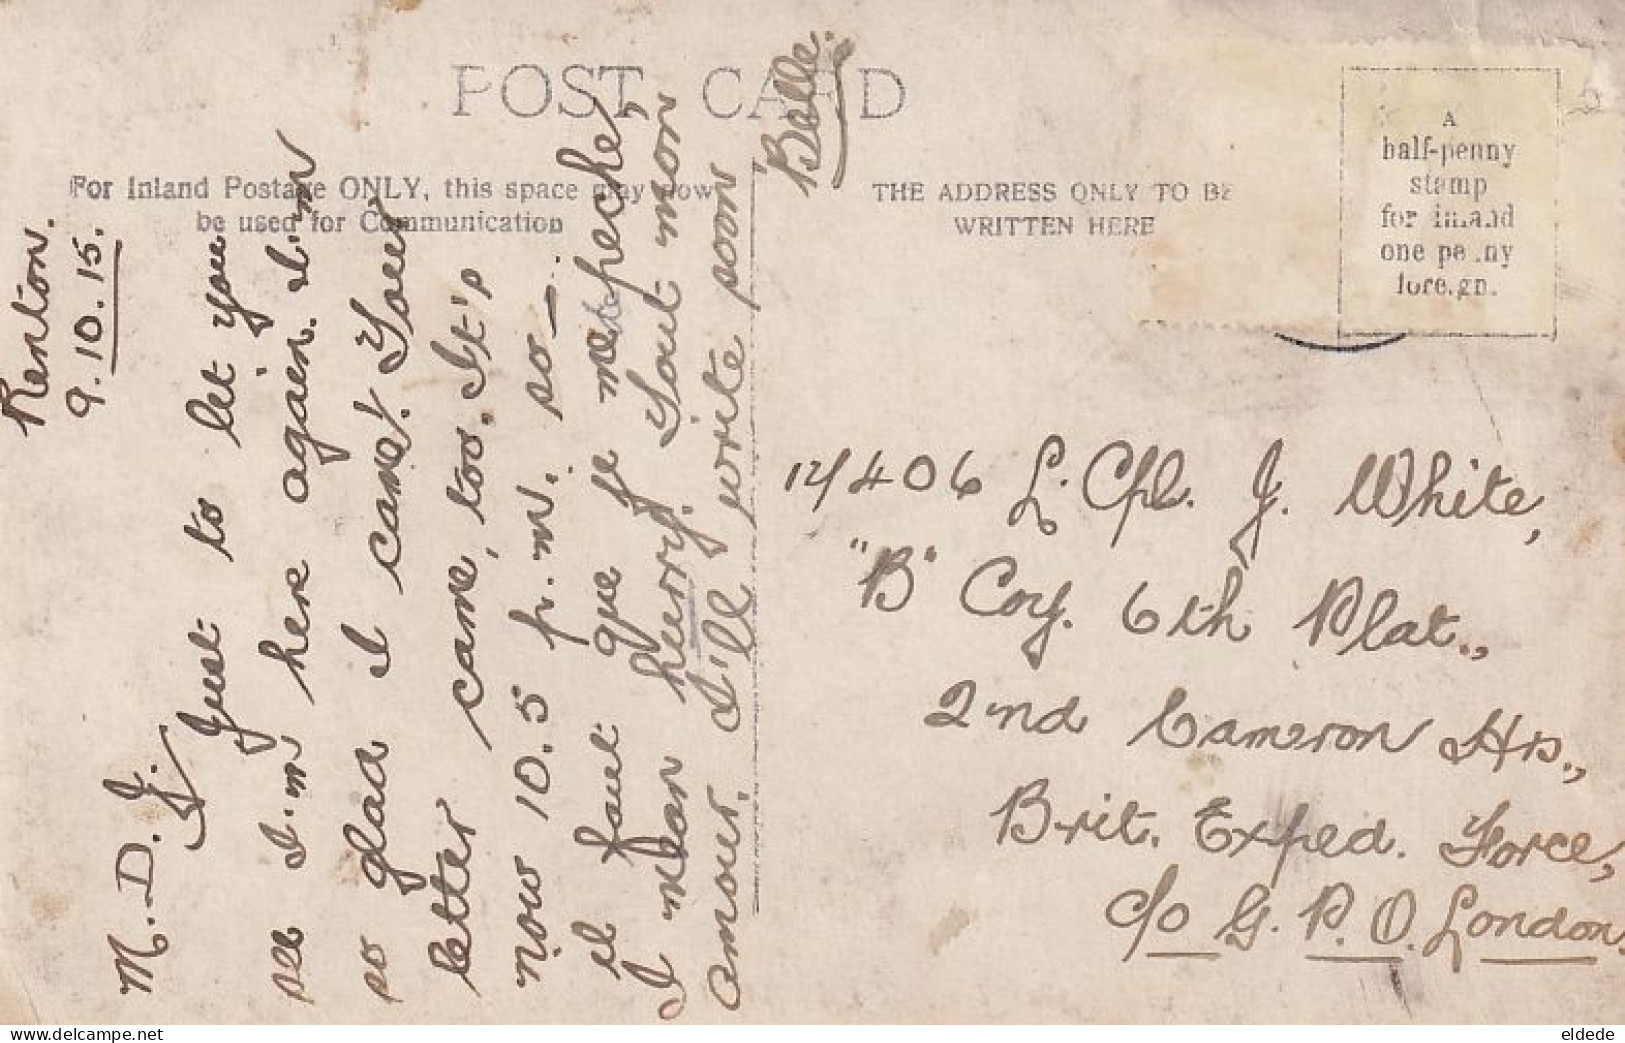 POST CARD
For Inland Postage ONLY, this space may now
be used for Communication
THE ADDRESS ONLY TO BE
WRITTEN HERE
A
half-penny
stamp
for inland
one penny
foreign.
Renton.
9.10.15.
M. D. J.
Just to let you
see I'm here again. I'm
so glad I came! Your
letter came, too. It's
now 10.5 p.m. so —
il faut que je me dépêche,
I mean hurry. Tout mon
amour. I'll write soon
Belle.
12/406 L. Cpl. J. White,
"B" Coy. 6th Plat.,
2nd Cameron Hrs.,
Brit. Exped. Force,
c/o G. P. O. London.
eldede
www.delcampe.net